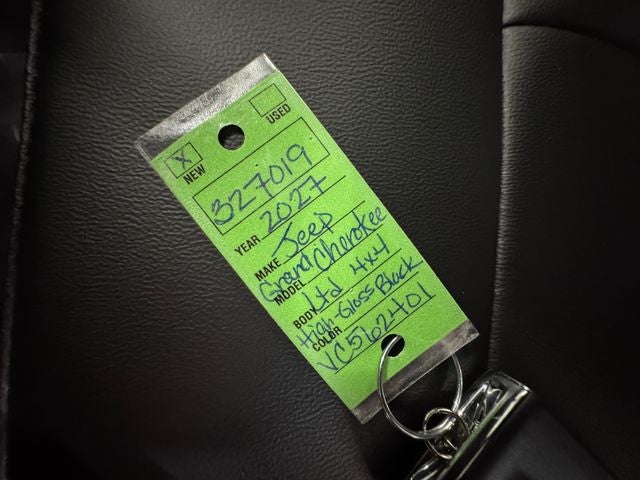 X
NEW
USED
327019
YEAR 2027
MAKE Jeep
MODEL Grand Cherokee
BODY Ltd 4x4
COLOR High-Gloss Black
VC562401